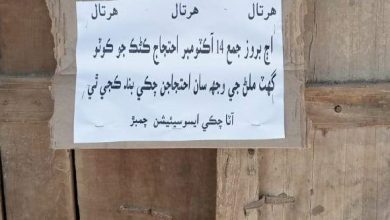 هرتال هرتال هرتال
اڄ بروز جمع 14 آڪٽومبر احتجاج ڪڻڪ جو ڪوٽو
گهٽ ملڻ جي وجهه سان احتجاجن چڪي بند ڪجي ٿي
آٽا چڪي ايسوسيئيشن چمبڙ